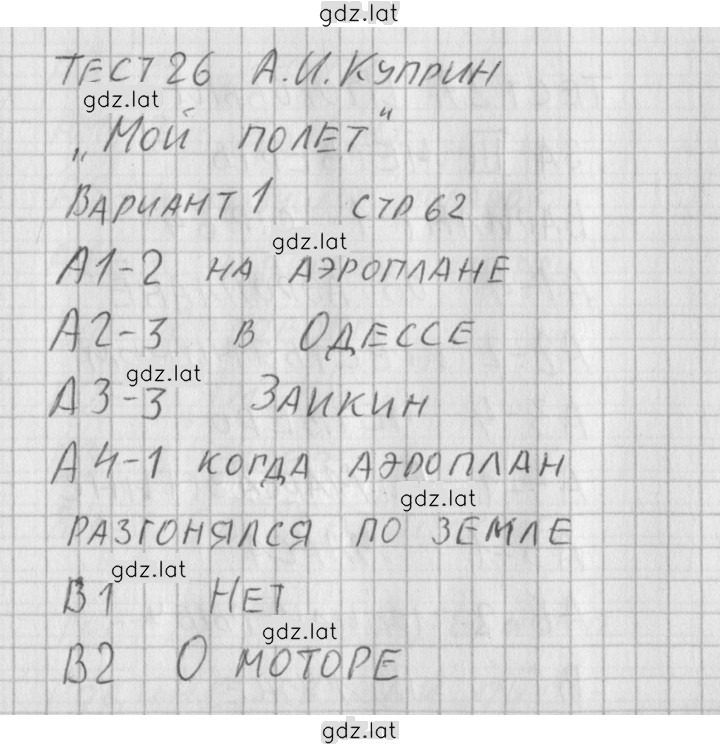 gdz.lat
ТЕСТ 26 А.И.КУПРИН
gdz.lat
„МОЙ ПОЛЕТ"
ВАРИАНТ 1 СТР 62
gdz.lat
А1-2 НА АЭРОПЛАНЕ
А2-3 В ОДЕССЕ
gdz.lat
А3-3 ЗАИКИН
А4-1 КОГДА АЭРОПЛАН
gdz.lat
РАЗГОНЯЛСЯ ПО ЗЕМЛЕ
gdz.lat
В1 НЕТ
gdz.lat
В2 О МОТОРЕ
gdz.lat